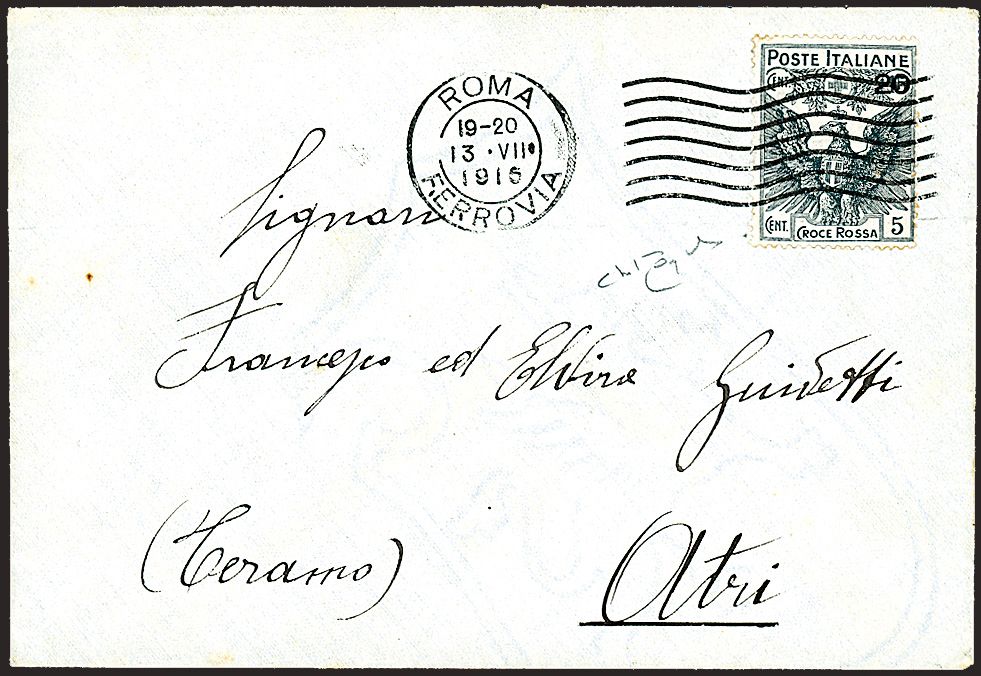 POSTE ITALIANE
CENT. 20
CENT. CROCE ROSSA 5
ROMA
19-20
13 · VII
1916
FERROVIA
Signori
Francesco ed Elvira Guidetti
(Teramo) Atri